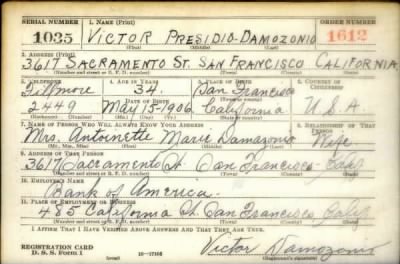 SERIAL NUMBER 1. NAME (Print) ORDER NUMBER
1035 VICTOR PRESIDIO DAMOZONIO 1612
(First) (Middle) (Last)
2. ADDRESS (Print)
3617 SACRAMENTO ST. SAN FRANCISCO CALIFORNIA
(Number and street or R. F. D. number) (Town) (County) (State)
3. TELEPHONE 4. AGE IN YEARS 5. PLACE OF BIRTH 6. COUNTRY OF CITIZENSHIP
Fillmore 34. San Francisco
DATE OF BIRTH
2449 May 15-1906. California U.S.A.
7. NAME OF PERSON WHO WILL ALWAYS KNOW YOUR ADDRESS 8. RELATIONSHIP OF THAT PERSON
Mrs. Antoinette Marie Damozonio Wife
(Mr., Mrs., Miss) (First) (Middle) (Last)
9. ADDRESS OF THAT PERSON
3617 Sacramento St. San Francisco Calif
(Number and street or R. F. D. number) (Town) (County) (State)
10. EMPLOYER'S NAME
Bank of America.
11. PLACE OF EMPLOYMENT OR BUSINESS
485 California St. San Francisco Calif
(Number and street or R. F. D. number) (Town) (County) (State)
I AFFIRM THAT I HAVE VERIFIED ABOVE ANSWERS AND THAT THEY ARE TRUE.
REGISTRATION CARD
D. S. S. Form 1 Victor Damozonio
(Registrant's signature)